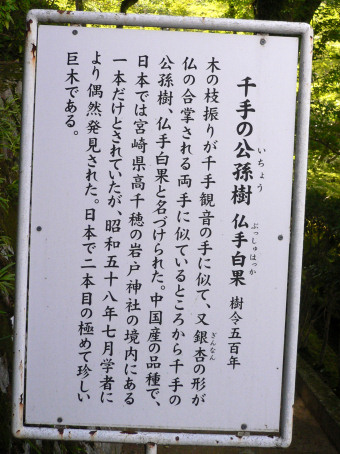 千手の公孫樹 仏手白果 樹令五百年
いちょう ぶっしゅはっか
木の枝振りが千手観音の手に似て、又銀杏の形が
ぎんなん
仏の合掌される両手に似ているところから千手の
公孫樹、仏手白果と名づけられた。中国産の品種で、
日本では宮崎県高千穂の岩戸神社の境内にある
一本だけとされていたが、昭和五十八年七月学者に
より偶然発見された。日本で二本目の極めて珍しい
巨木である。